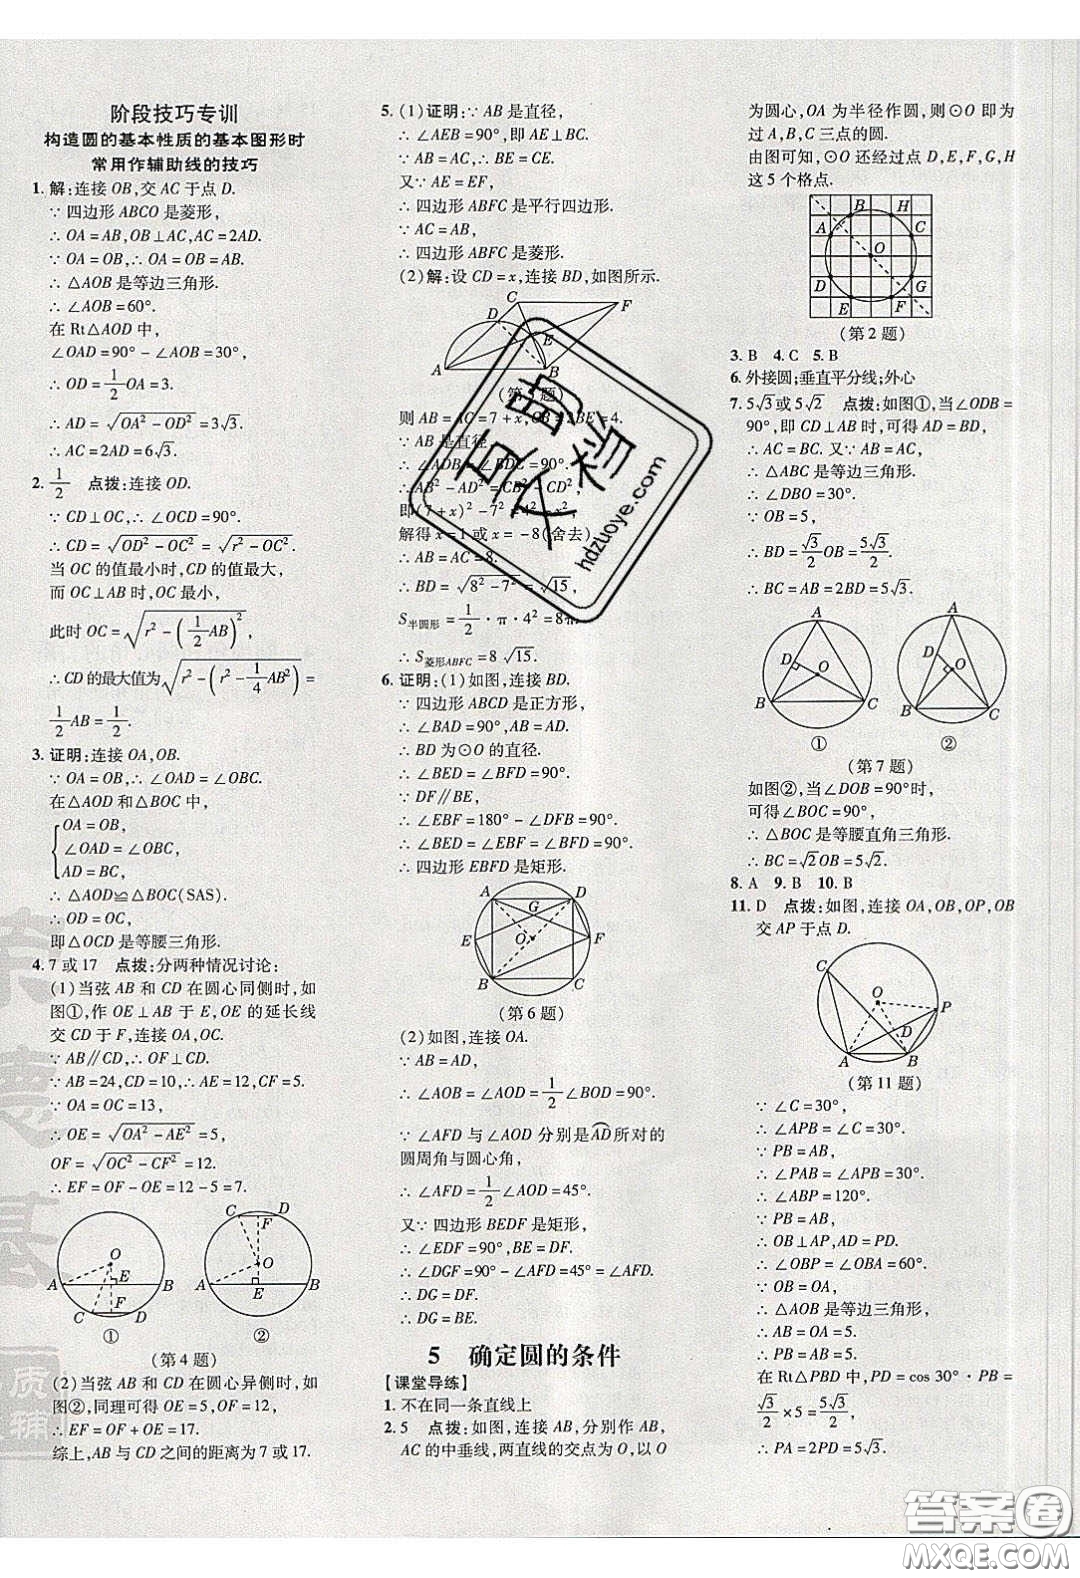 阶段技巧专训
构造圆的基本性质的基本图形时
常用作辅助线的技巧
1. 解:连接 OB,交 AC 于点 D.
∵ 四边形 ABCO 是菱形,
∴ OA = AB,OB⊥AC,AC = 2AD.
∵ OA = OB,∴ OA = OB = AB.
∴ △AOB 是等边三角形.
∴ ∠AOB = 60°.
在 Rt△AOD 中,
∠OAD = 90° - ∠AOB = 30°,
∴ OD = 1/2 OA = 3.
∴ AD = √(OA² - OD²) = 3√3.
∴ AC = 2AD = 6√3.
2. 1/2 点拨:连接 OD.
∵ CD⊥OC,∴ ∠OCD = 90°.
∴ CD = √(OD² - OC²) = √(r² - OC²).
当 OC 的值最小时,CD 的值最大,
而 OC⊥AB 时,OC 最小,
此时 OC = √(r² - (1/2 AB)²),
∴ CD 的最大值为√(r² - (r² - 1/4 AB²)) =
1/2 AB = 1/2.
3. 证明:连接 OA,OB.
∵ OA = OB,∴ ∠OAD = ∠OBC.
在△AOD 和△BOC 中,
OA = OB,
∠OAD = ∠OBC,
AD = BC,
∴ △AOD≌△BOC(SAS).
∴ OD = OC.
即△OCD 是等腰三角形.
4. 7 或 17 点拨:分两种情况讨论:
(1)当弦 AB 和 CD 在圆心同侧时,如
图①,作 OE⊥AB 于 E,OE 的延长线
交 CD 于 F,连接 OA,OC.
∵ AB∥CD,∴ OF⊥CD.
∵ AB = 24,CD = 10,∴ AE = 12,CF = 5.
∵ OA = OC = 13,
∴ OE = √(OA² - AE²) = 5,
OF = √(OC² - CF²) = 12.
∴ EF = OF - OE = 12 - 5 = 7.
O
E
A B
F
C D
①
C F D
O
A E B
②
(第 4 题)
(2)当弦 AB 和 CD 在圆心异侧时,如
图②,同理可得 OE = 5,OF = 12,
∴ EF = OF + OE = 17.
综上,AB 与 CD 之间的距离为 7 或 17.
5. (1)证明:∵ AB 是直径,
∴ ∠AEB = 90°,即 AE⊥BC.
∵ AB = AC,∴ BE = CE.
又∵ AE = EF,
∴ 四边形 ABFC 是平行四边形.
∵ AC = AB,
∴ 四边形 ABFC 是菱形.
(2)解:设 CD = x,连接 BD,如图所示.
C F
D
E
A B
则 AB = AC = 7 + x,CB = 2BE = 4.
∵ AB 是直径,
∴ ∠ADB = ∠BDC = 90°.
∴ AB² - AD² = CB² - CD²,
即(7 + x)² - 7² = 4² - x²,
解得 x = 1 或 x = -8(舍去).
∴ AB = AC = 8.
∴ BD = √(8² - 7²) = √15,
S半圆形 = 1/2 · π · 4² = 8π.
∴ S菱形ABFC = 8 √15.
6. 证明:(1)如图,连接 BD.
∵ 四边形 ABCD 是正方形,
∴ ∠BAD = 90°,AB = AD.
∴ BD 为⊙O 的直径.
∴ ∠BED = ∠BFD = 90°.
∵ DF∥BE,
∴ ∠EBF = 180° - ∠DFB = 90°.
∴ ∠BED = ∠EBF = ∠BFD = 90°.
∴ 四边形 EBFD 是矩形.
A D
G
E O F
B C
(第 6 题)
(2)如图,连接 OA.
∵ AB = AD,
∴ ∠AOB = ∠AOD = 1/2 ∠BOD = 90°.
∵ ∠AFD 与∠AOD 分别是AD所对的
圆周角与圆心角,
∴ ∠AFD = 1/2 ∠AOD = 45°.
又∵ 四边形 BEDF 是矩形,
∴ ∠EDF = 90°,
∴ ∠DGF = 90° - ∠AFD = 45° = ∠AFD.
∴ DG = DF.
∴ DG = BE.
5 确定圆的条件
【课堂导练】
1. 不在同一条直线上
2. 5 点拨:如图,连接 AB,分别作 AB,
AC 的中垂线,两直线的交点为 O,以 O
为圆心,OA 为半径作圆,则⊙O 即为
过 A,B,C 三点的圆.
由图可知,⊙O 还经过点 D,E,F,G,H
这 5 个格点.
B H
A C
O
D G
E F
(第 2 题)
3. B 4. C 5. B
6. 外接圆;垂直平分线;外心
7. 5√3或 5√2 点拨:如图①,当∠ODB =
90°,即 CD⊥AB 时,可得 AD = BD,
∴ AC = BC. ∵ AB = AC,
∴ △ABC 是等边三角形.
∴ ∠DBO = 30°.
∵ OB = 5,
∴ BD = √3/2 OB = 5√3/2.
∴ BC = AB = 2BD = 5√3.
A
D
O
B C
①
A
D
O
B C
②
(第 7 题)
如图②,当∠DOB = 90°时,
可得∠BOC = 90°,
∴ △BOC 是等腰直角三角形.
∴ BC = √2OB = 5√2.
8. A 9. B 10. B
11. D 点拨:如图,连接 OA,OB,OP,OB
交 AP 于点 D.
C
O
P
D
A B
(第 11 题)
∵ ∠C = 30°,
∴ ∠APB = ∠C = 30°.
∵ PB = AB,
∴ ∠PAB = ∠APB = 30°.
∴ ∠ABP = 120°.
∵ PB = AB,
∴ OB⊥AP,AD = PD.
∴ ∠OBP = ∠OBA = 60°.
∵ OB = OA,
∴ △AOB 是等边三角形,
∴ AB = OA = 5.
∴ PB = AB = 5.
在 Rt△PBD 中,PD = cos 30° · PB =
√3/2 × 5 = 5√3/2,
∴ PA = 2PD = 5√3.
hdzuoye.com
答案圈
MXQE.COM